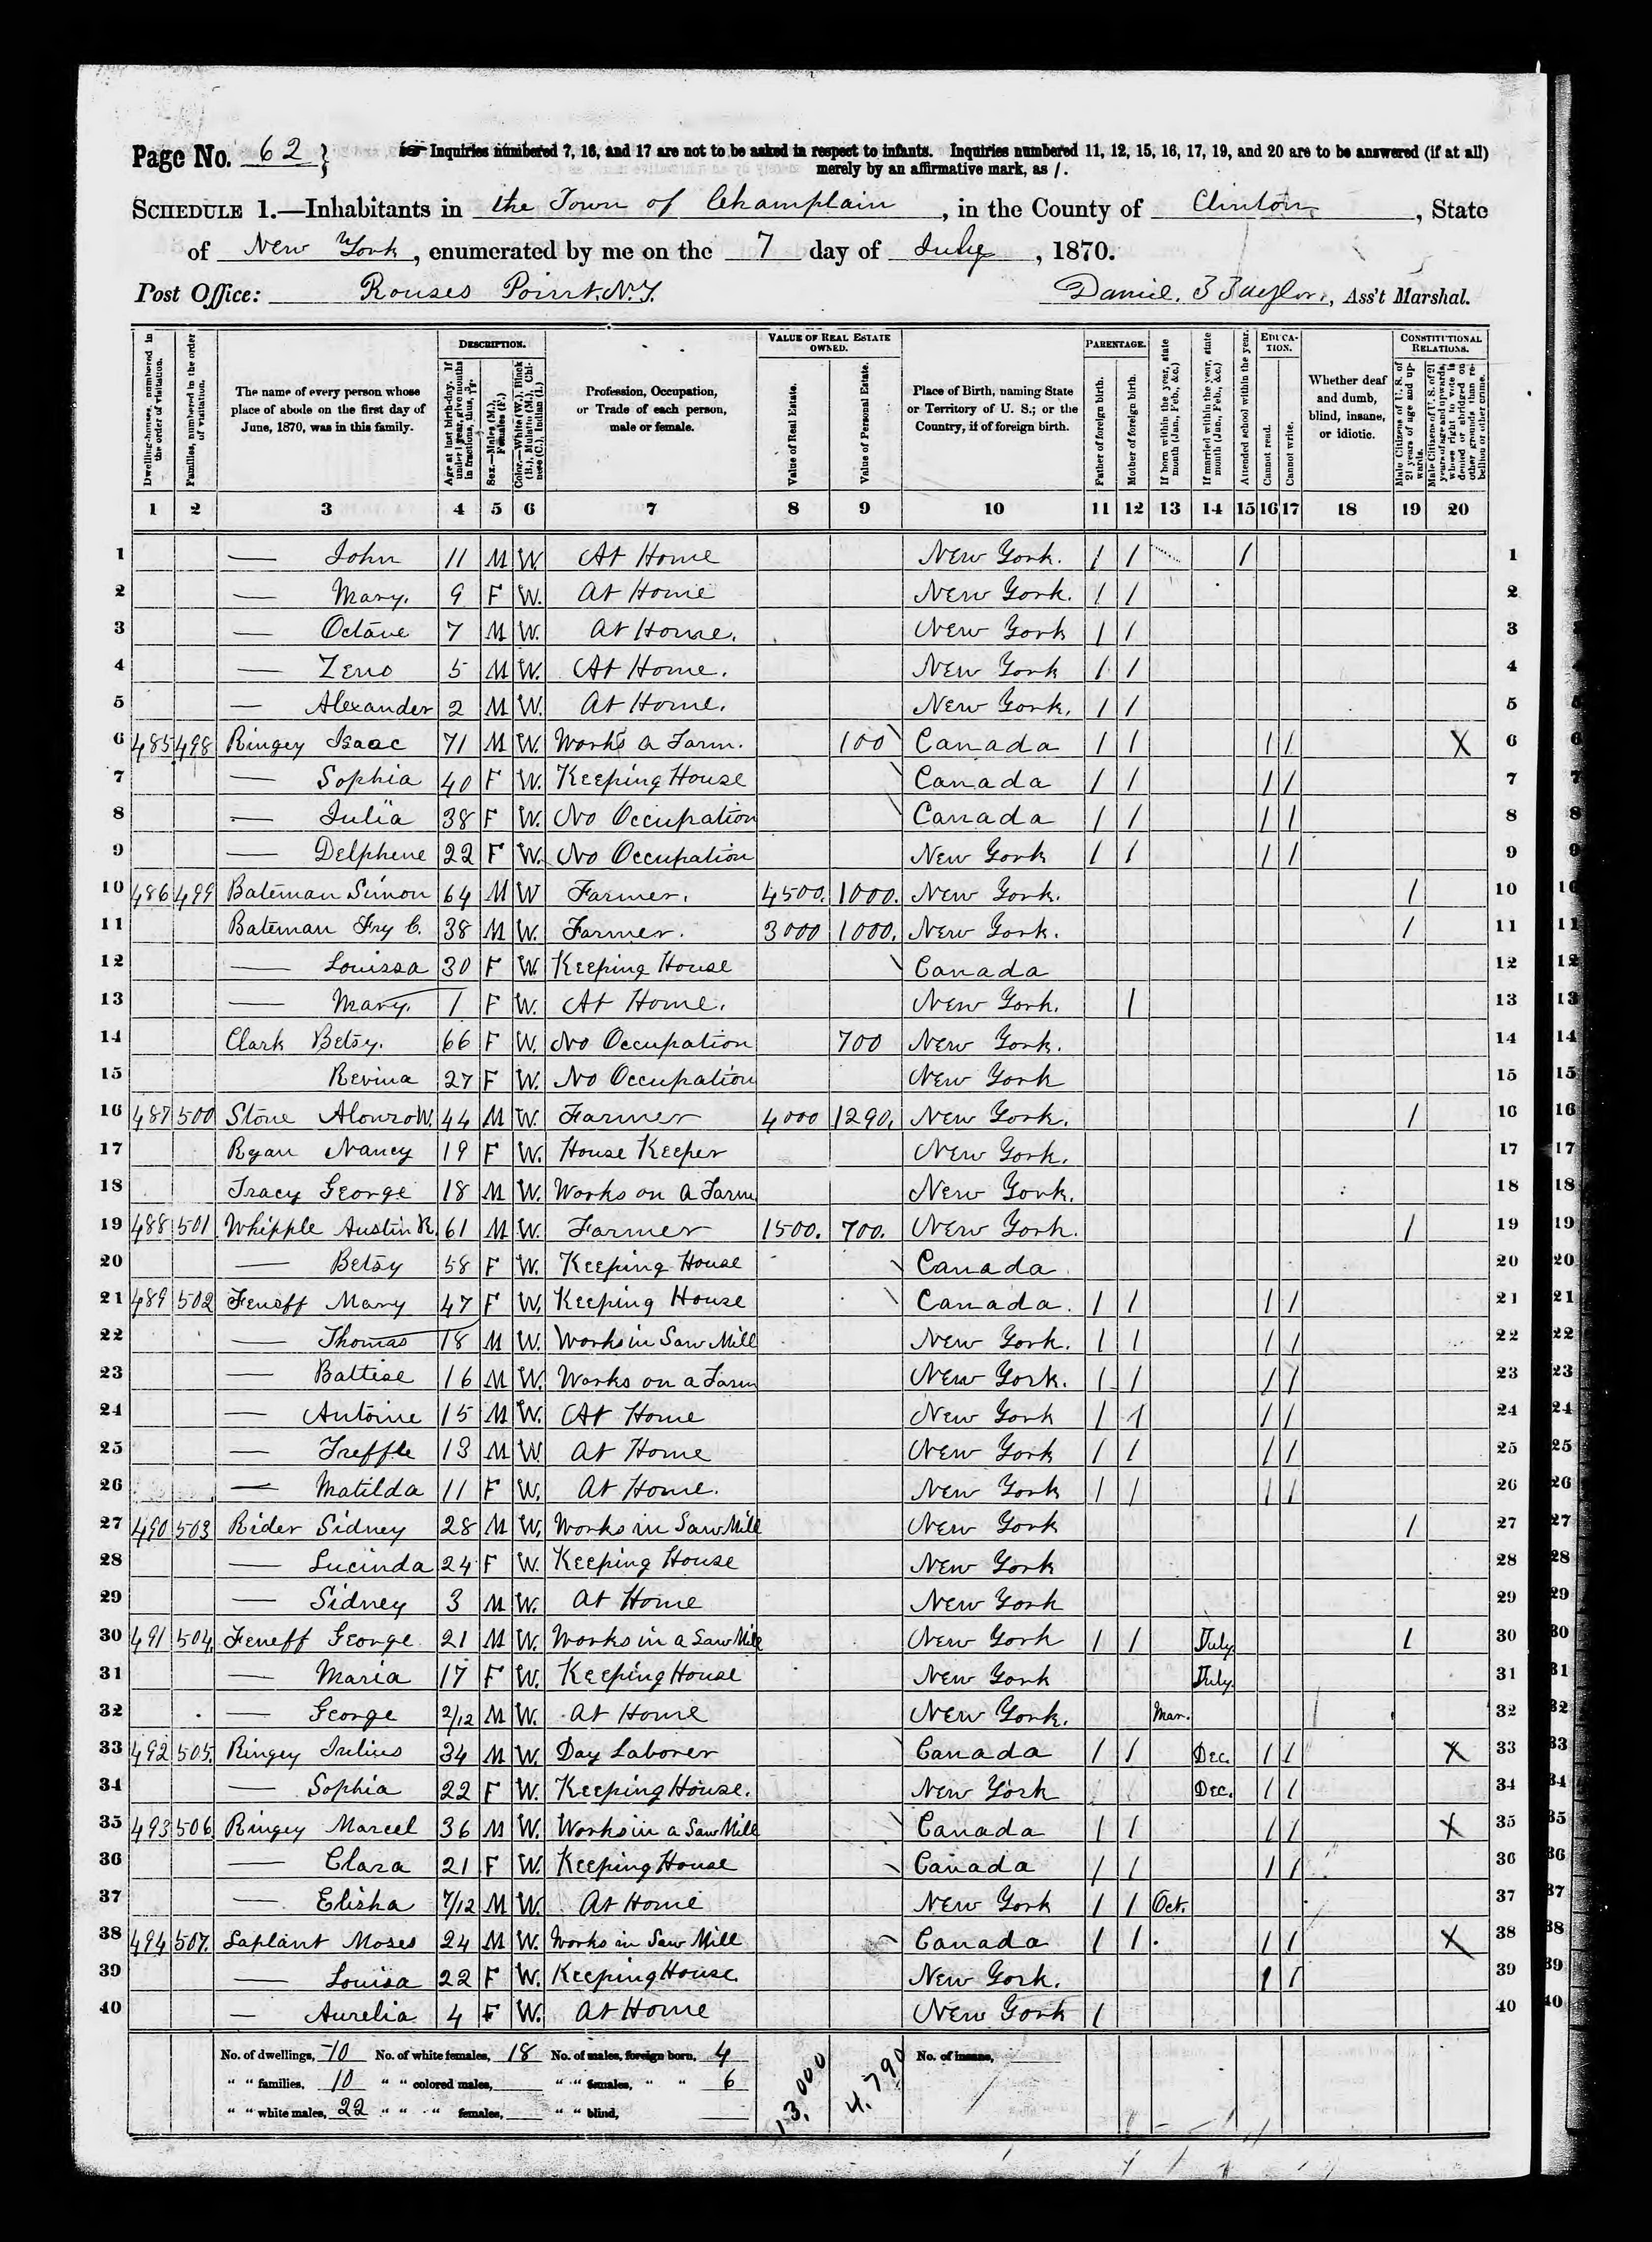 Page No. 62 } Inquiries numbered 7, 16, and 17 are not to be asked in respect to infants. Inquiries numbered 11, 12, 15, 16, 17, 19, and 20 are to be answered (if at all)
merely by an affirmative mark, as /.
SCHEDULE 1.—Inhabitants in the Town of Champlain, in the County of Clinton, State
of New York, enumerated by me on the 7 day of July, 1870.
Post Office: Rouses Point. N.Y. Taylor, Ass't Marshal.
Dwelling-houses, numbered in the order of visitation.
Families, numbered in the order of visitation.
The name of every person whose place of abode on the first day of June, 1870, was in this family.
DESCRIPTION.
Age at last birth-day. If under 1 year, give months in fractions, thus,
Sex.—Males (M.), Females (F.)
Color.—White (W.), Black (B.), Mulatto (M.), Chinese (C.), Indian (I.)
Profession, Occupation, or Trade of each person, male or female.
VALUE OF REAL ESTATE OWNED.
Value of Real Estate.
Value of Personal Estate.
Place of Birth, naming State or Territory of U. S.; or the Country, if of foreign birth.
PARENTAGE.
Father of foreign birth.
Mother of foreign birth.
If born within the year, state month (Jan., Feb., &c.)
If married within the year, state month (Jan., Feb., &c.)
Attended school within the year.
EDUCATION.
Cannot read.
Cannot write.
Whether deaf and dumb, blind, insane, or idiotic.
CONSTITUTIONAL RELATIONS.
Male Citizens of U. S. of 21 years of age and upwards.
Male Citizens of U. S. of 21 years of age and upwards, whose right to vote is denied or abridged on other grounds than rebellion or other crime.
1 2 3 4 5 6 7 8 9 10 11 12 13 14 15 16 17 18 19 20
1 — John 11 M W. At Home New York. / / / 1
2 — Mary. 9 F W. At Home New York. / / 2
3 — Octave 7 M W. At Home. New York / / 3
4 — Zeno 5 M W. At Home. New York / / 4
5 — Alexander 2 M W. At Home. New York. / / 5
6 485 498 Ringey Isaac 71 M W. Works a Farm. 100 Canada / / / / X 6
7 — Sophia 40 F W. Keeping House Canada / / / / 7
8 — Julia 38 F W. No Occupation Canada / / / / 8
9 — Delphine 22 F W. No Occupation New York / / / / 9
10 486 499 Bateman Simon 64 M W Farmer. 4500. 1000. New York. / 10
11 Bateman Fry C. 38 M W. Farmer. 3000 1000. New York. / 11
12 — Louissa 30 F W. Keeping House Canada 12
13 — Mary. 1 F W. At Home. New York. / 13
14 Clark Betsy. 66 F W. No Occupation 700 New York. 14
15 Revina 27 F W. No Occupation New York 15
16 487 500 Stone Alonzo W. 44 M W. Farmer 4000 1290. New York. / 16
17 Ryan Nancy 19 F W. House Keeper New York. 17
18 Tracy George 18 M W. Works on a Farm New York. 18
19 488 501 Whipple Austin R. 61 M W. Farmer 1500. 700. New York. / 19
20 — Betsy 58 F W. Keeping House Canada 20
21 489 502 Feneff Mary 47 F W. Keeping House Canada. / / / / 21
22 — Thomas 18 M W. Works in Saw Mill New York. / / / / 22
23 — Battise 16 M W. Works on a Farm New York. / / / / 23
24 — Antoine 15 M W. At Home New York / / / / 24
25 — Treffle 13 M W. At Home New York / / / / 25
26 — Matilda 11 F W. At Home. New York / / / / 26
27 490 503 Rider Sidney 28 M W. Works in Saw Mill New York / 27
28 — Lucinda 24 F W. Keeping House New York 28
29 — Sidney 3 M W. At Home New York 29
30 491 504 Feneff George 21 M W. Works in a Saw Mill New York / / July / 30
31 — Maria 17 F W. Keeping House New York July 31
32 — George 2/12 M W. At Home New York. Mar. 32
33 492 505. Ringey Julius 34 M W. Day Laborer Canada / / Dec. / / X 33
34 — Sophia 22 F W. Keeping House. New York Dec. / / 34
35 493 506. Ringey Marcel 36 M W. Works in a Saw Mill Canada / / / / X 35
36 — Clara 21 F W. Keeping House Canada / / / / 36
37 — Elisha 7/12 M W. At Home New York / / Oct. 37
38 494 507. Laplant Moses 24 M W. Works in Saw Mill Canada / / / / X 38
39 — Louisa 22 F W. Keeping House. New York. / / 39
40 — Aurelia 4 F W. At Home New York / 40
No. of dwellings, 10 No. of white females, 18 No. of males, foreign born, 4 13,000 4,790 No. of insane,
" " families, 10 " " colored males, " " females, " " 6
" " white males, 22 " " " females, " " blind,